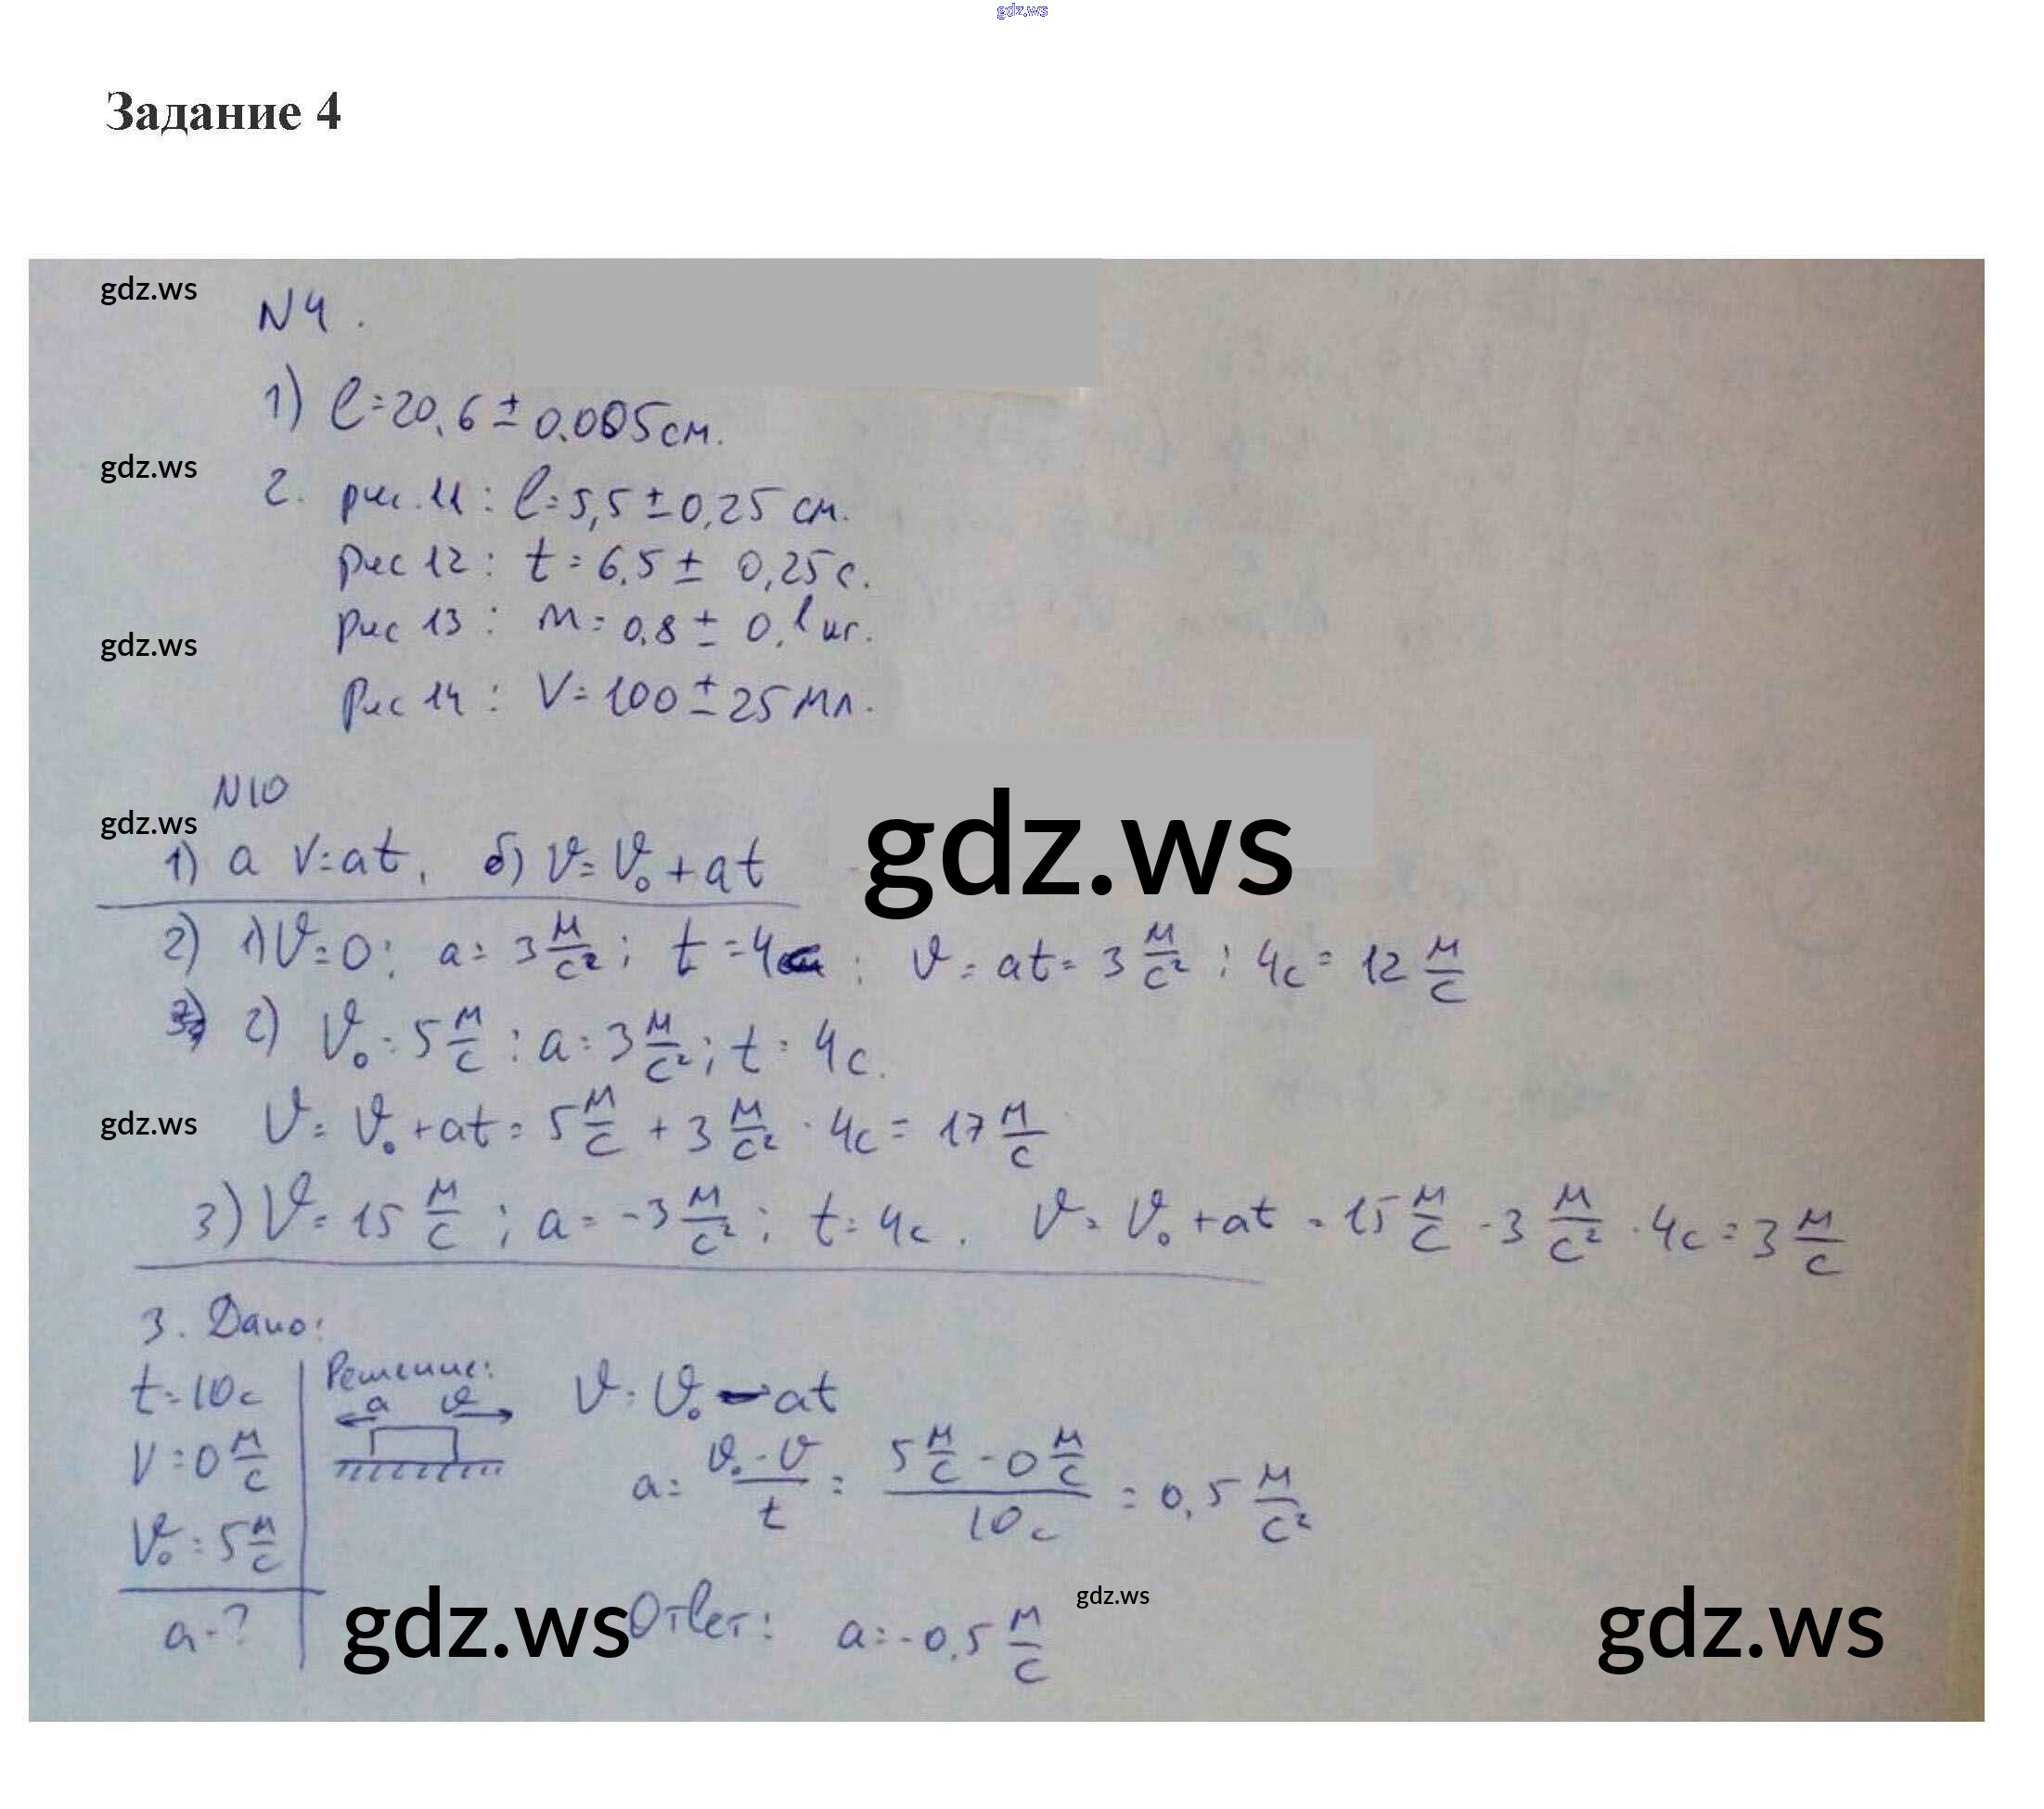 gdz.ws
Задание 4
gdz.ws
N4.
1) l=20,6 ± 0.005см.
gdz.ws
2. рис. 11 : l=5,5 ± 0,25 см.
рис 12 : t = 6,5 ± 0,25 с.
gdz.ws
рис 13 : m = 0,8 ± 0,1 кг.
Рис 14 : V = 100 ± 25 мл.
N10
gdz.ws
gdz.ws
1) а v=at, б) v = v₀ + at
2) 1) v=0; a = 3 м/с²; t = 4с; v = at = 3 м/с² · 4с = 12 м/с
2) v₀ = 5 м/с ; a = 3 м/с² ; t = 4с.
gdz.ws
v = v₀ + at = 5 м/с + 3 м/с² · 4с = 17 м/с
3) v = 15 м/с ; a = -3 м/с² ; t = 4с. v = v₀ + at = 15 м/с - 3 м/с² · 4с = 3 м/с
3. Дано:
t = 10с
V = 0 м/с
v₀ = 5 м/с
a - ?
Решение:
a v
v = v₀ - at
a = (v₀ - v)/t = (5 м/с - 0 м/с)/10с = 0,5 м/с²
Ответ: a = -0,5 м/с
gdz.ws
gdz.ws
gdz.ws